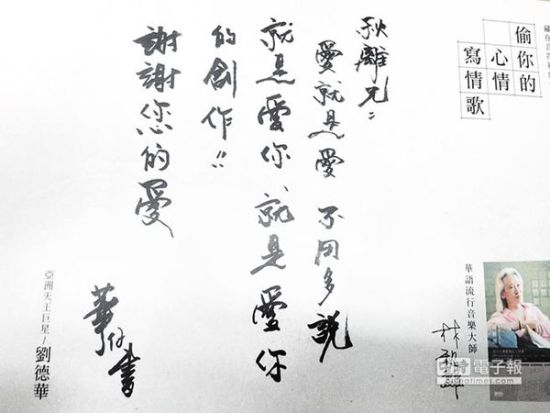 偷你的
心情
寫情歌
華語流行音樂大師
林秋離
秋離兄:
愛就是愛 不用多說
就是愛你、就是愛你
的創作!!
謝謝您的愛
華仔書
亞洲天王巨星/劉德華
中時電子報
chinatimes.com